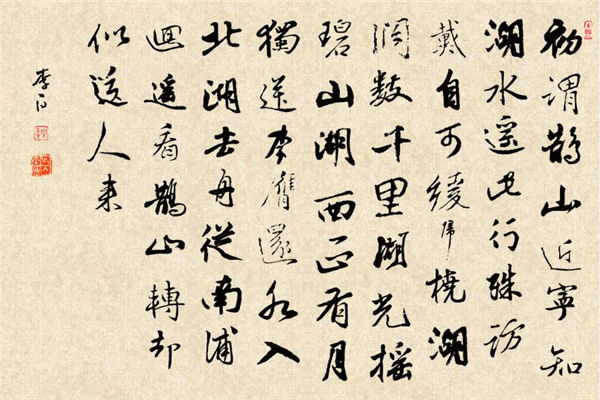 初謂鵲山近寧知
湖水遥此行殊訪
戴自可緩歸橈湖
闊數千里湖光摇
碧山湖西正有月
獨送李膺還水入
北湖去舟從南浦
迴遥看鵲山轉却
似送人来
李白